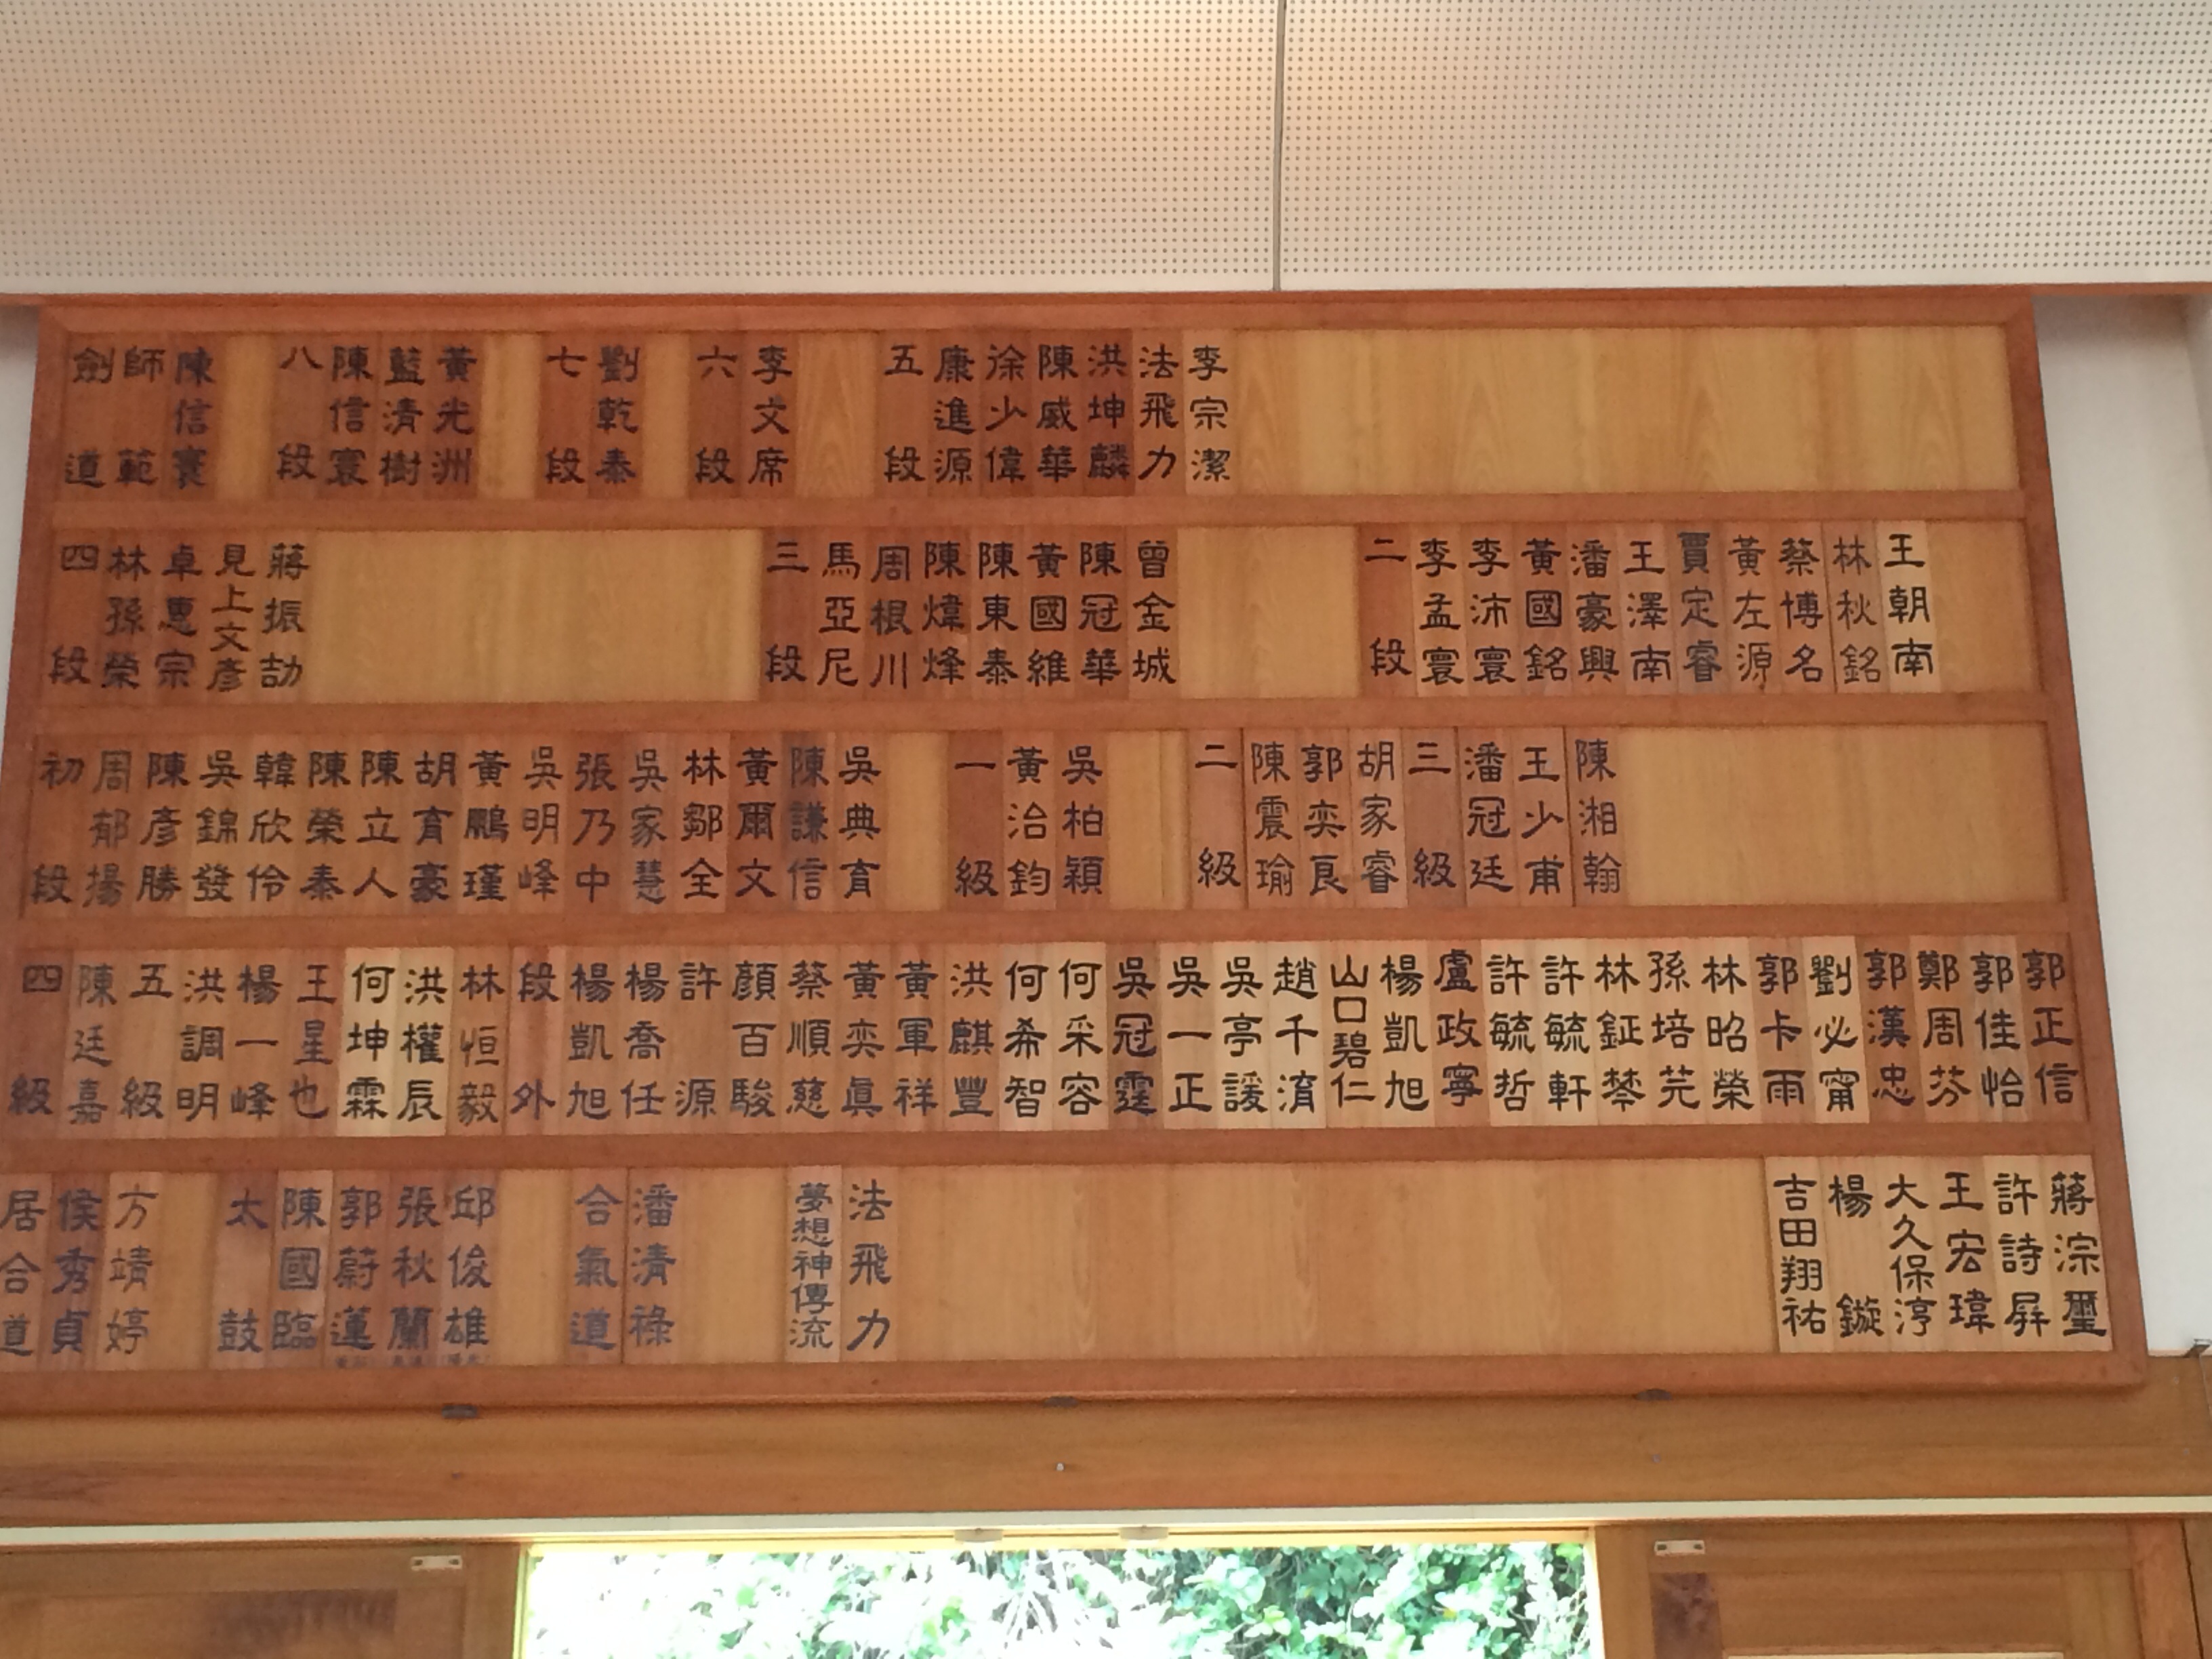 劍道
師範
陳信寰
八段
陳信寰
藍清樹
黃光洲
七段
劉乾泰
六段
李文席
五段
康進源
徐少偉
陳威華
洪坤麟
法飛力
李宗潔
四段
林孫榮
卓惠宗
見上文彥
蔣振劼
三段
馬亞尼
周根川
陳煒烽
陳東泰
黃國維
陳冠華
曾金城
二段
李孟寰
李沛寰
黃國銘
潘豪興
王澤南
賈定睿
黃左源
蔡博名
林秋銘
王朝南
初段
周郁揚
陳彥勝
吳錦發
韓欣伶
陳榮泰
陳立人
胡育豪
黃鵬瑾
吳明峰
張乃中
吳家慧
林鄒全
黃爾文
陳謙信
吳典育
一級
黃治鈞
吳柏穎
二級
陳震瑜
郭奕良
胡家睿
三級
潘冠廷
王少甫
陳湘翰
四級
陳廷嘉
五級
洪調明
楊一峰
王星也
何坤霖
洪權辰
林恒毅
段外
楊凱旭
楊喬任
許源
顏百駿
蔡順慈
黃奕真
黃軍祥
洪麒豐
何希智
何采容
吳冠霆
吳一正
吳亭諼
趙千淯
山口碧仁
楊凱旭
盧政寧
許毓哲
許毓軒
林鉦棽
孫培芫
林昭榮
郭卡雨
劉必甯
郭漢忠
鄭周芬
郭佳怡
郭正信
居合道
侯秀貞
方靖婷
太鼓
陳國臨
郭蔚蓮
張秋蘭
邱俊雄
合氣道
潘清祿
夢想神傳流
法飛力
吉田翔祐
楊鏇
大久保淳
王宏瑋
許詩屏
蔣淙璽